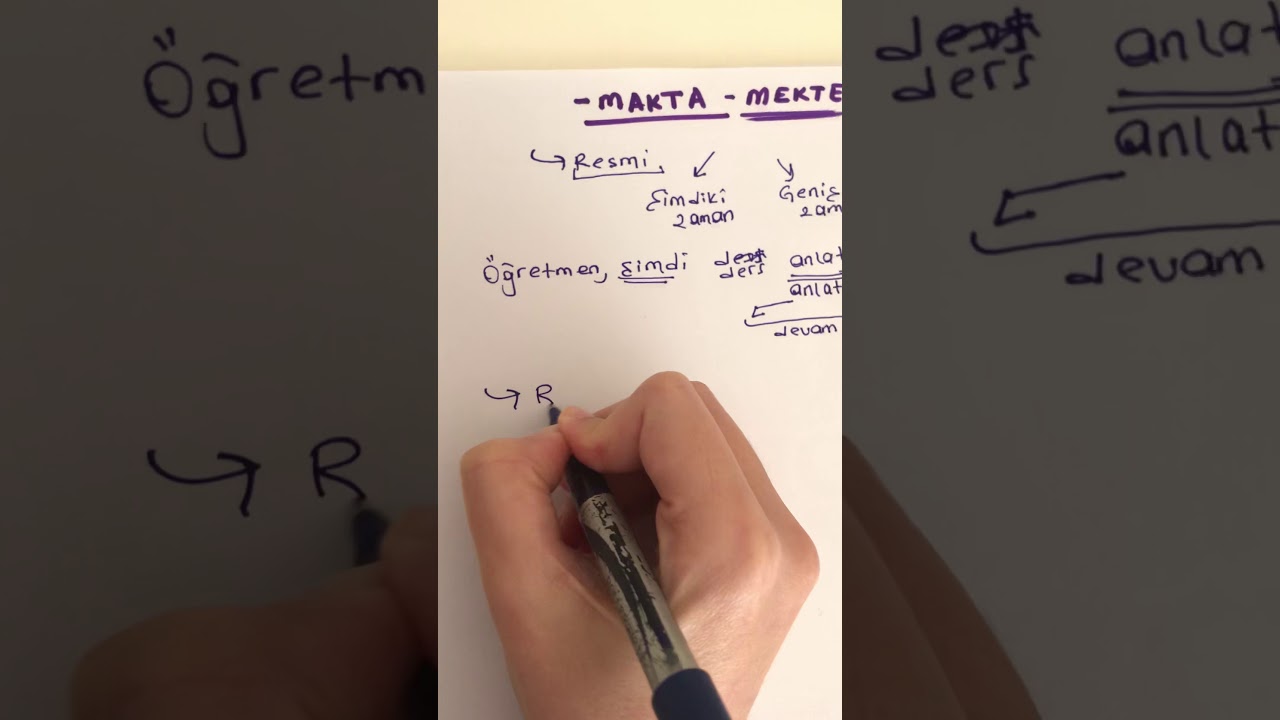 - MAKTA - MEKTE
↪ Resmi
Şimdiki Geniş
zaman zam
Öğretmen, şimdi ders anlat
anlat
devam
↪ R